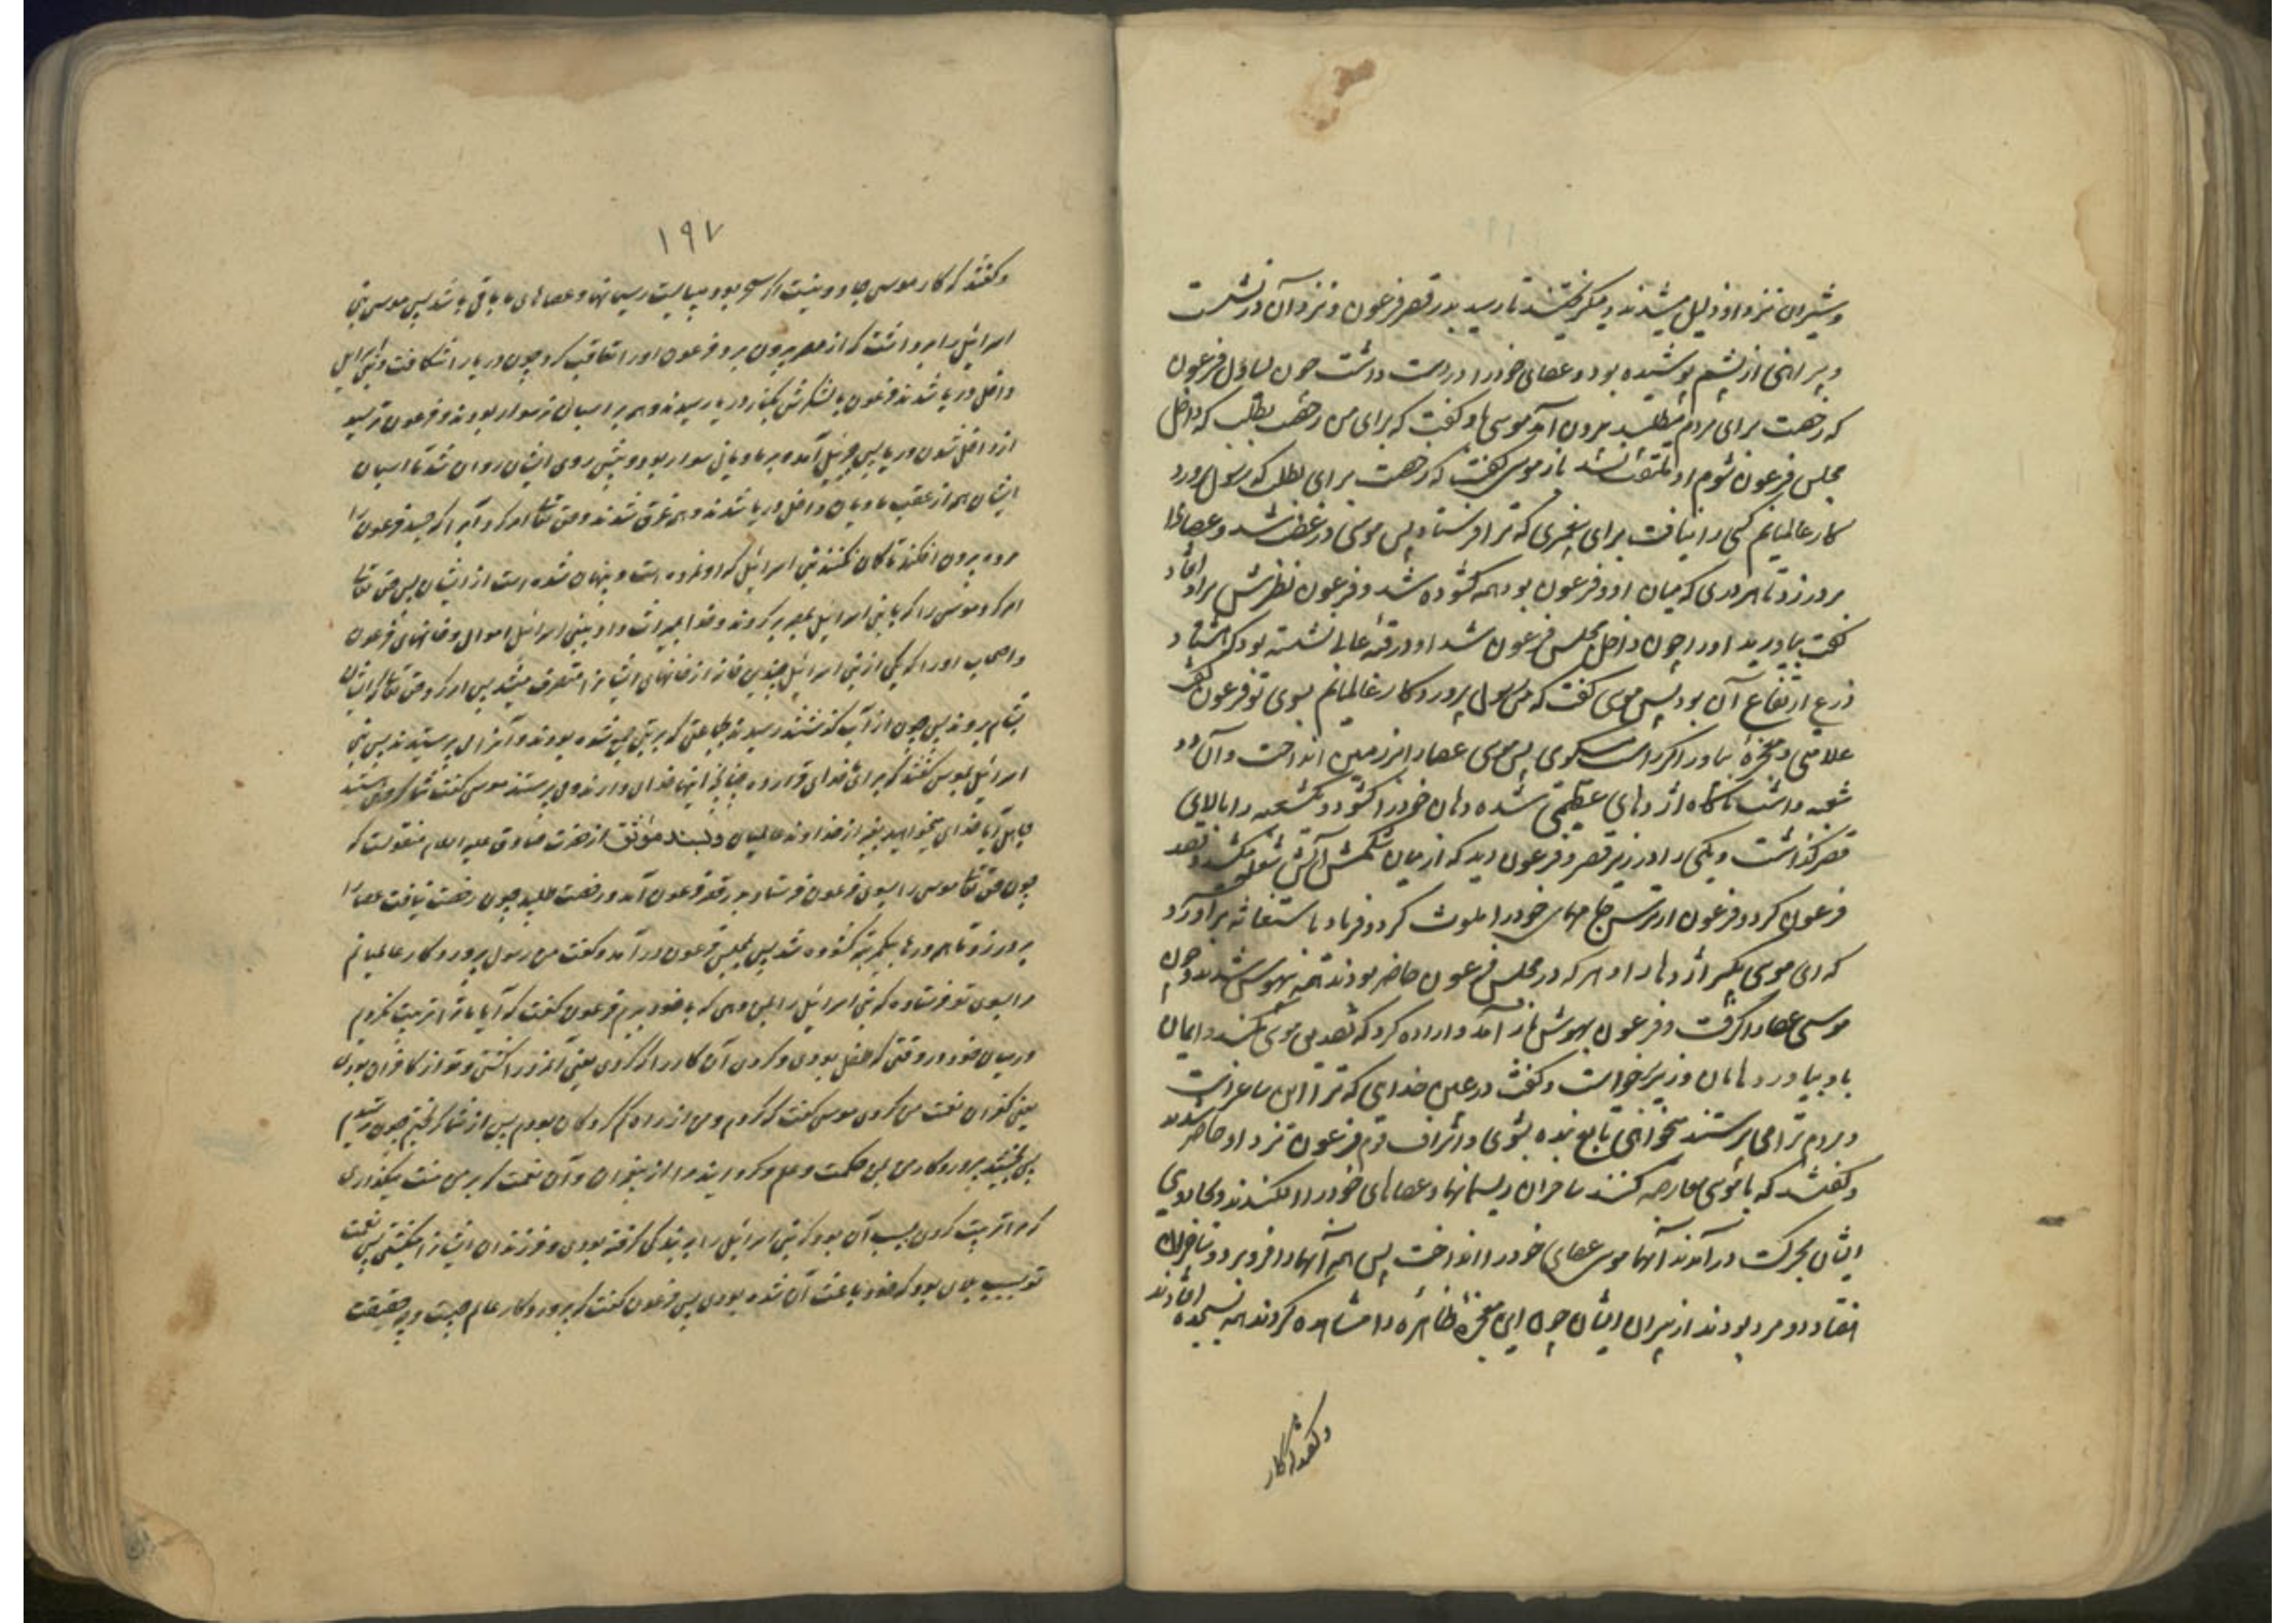 و شیران نزد او ذلیل میشدند و میگریختند تا رسید بدر قصر فرعون و نزد آن در نشست
و پیراهنی از پشم پوشیده بود و عصای خود را در دست داشت چون یساول فرعون
که رخصت برای مردم میطلبید بیرون آمد موسی باو گفت که برای من رخصت بطلب که داخل
مجلس فرعون شوم او ملتفت نشد باز موسی گفت که رخصت برای بطلب که رسول پرورد
کار عالمیانم کسی را نیافت برای پیغمبری که ترا فرستاد پس موسی در غضب شد و عصا را
بر در زد تا هر دری که میان او و فرعون بود همه کشوده شد و فرعون نظرش بر او افتاد
گفت بیاورید او را چون داخل مجلس فرعون شد او در قبهٔ عالی نشسته بود که هشتاد
ذرع ارتفاع آن بود پس موسی گفت که من رسول پروردکار عالمیانم بسوی تو فرعون گفت
علامتی و معجزهٔ بیاور اگر راست میگوی پس موسی عصا را بر زمین انداخت و آن دو
شعبه داشت ناگاه اژدهای عظیمی شده دهان خود را کشود و یکشعبه را بالای
قصر گذاشت و یکی را در زیر قصر و فرعون دید که از میان شکمش آتش شعله میکشد و قصد
فرعون کرد و فرعون از ترس جامهای خود را ملوث کرد و فریاد باستغاثه برآورد
که ای موسی بگیر اژدها را و هر که در مجلس فرعون حاضر بودند همه بیهوش شدند و چون
موسی عصا را گرفت و فرعون بهوش باز آمد و اراده کرد که تصدیق موسی بکند و ایمان
باو بیاورد هامان وزیر برخواست و گفت در عین خدایی که ترا
و مردم ترا می پرستند میخواهی تابع بنده بشوی و اشراف قوم فرعون نزد او حاضر شدند
و گفتند که با موسی معارضه کنند ساحران ریسمانها و عصاهای خود را افکندند و بجادوی
ایشان بحرکت در آمدند آنها موسی عصای خود را انداخت پس همه آنها را فرو برد و ساحران
هفتاد دو مرد بودند از پیران ایشان چون این معجزهٔ ظاهره را مشاهده کردند همه بسجده افتادند
و گفتند که کار
۱۹۷
و گفتند که کار موسی جادو نیست اگر سحر بود میبایست ریسمانها و عصاهای ما باقی باشد پس موسی بنی
اسرائیل را برداشت که از مصر بیرون برد و فرعون او را تعاقب کرد چون دریا را شکافت و بنی اسرائیل
داخل دریا شدند فرعون با لشکرش بکنار دریا رسیدند و همه بر اسبان نر سوار بودند و فرعون ترسید
از داخل شدن دریا پس جبرئیل آمد و بر مادیانی سوار بود و پیش روی ایشان روان شد تا اسبان
ایشان همه از عقب مادیان داخل دریا شدند و همه غرق شدند و حق تعالی امر کرد آب را که جسد فرعون را
مرده بیرون افکند تا گمان نکنند بنی اسرائیل که او نمرده است و پنهان شده است از ایشان پس حق تعالی
امر کرد موسی را که با بنی اسرائیل بمصر برگردند و خدا بمیراث داد ببنی اسرائیل اموال و خانهای فرعون
و اصحاب او را که یکی از بنی اسرائیل چندین خانه از خانهای ایشانرا متصرف میشد پس امر کرد حق تعالی که ایشان
بشام بروند پس چون از آب گذشتند رسیدند بجماعتی که بر بتی جمع شده بودند و آنرا می پرستیدند پس بنی
اسرائیل بموسی گفتند که برای ما خدای قرار ده چنانچه اینها خدای دارند و می پرستند موسی گفت شما گروهی هستید
جاهل آیا خدای میخواهید بغیر از خداوند عالمیان و بسند موثق از حضرت صادق علیه السلام منقولست که
چون حق تعالی موسی را بسوی فرعون فرستاد بدر قصر فرعون آمد و رخصت طلبید چون رخصت نیافت عصا را
بر در زد و تمام درها بیکمرتبه کشوده شد پس بمجلس فرعون در آمد و گفت من رسول پروردکار عالمیانم
مرا بسوی تو فرستاده که بنی اسرائیل را بمن دهی که با خود ببرم فرعون گفت که آیا ما ترا تربیت نکردیم
در میان خود در وقتی که طفل بودی و کردی آن کار را که کردی یعنی آنمرد را کشتی و تو از کافران بودی
یعنی کفران نعمت من کردی موسی گفت که کردم و من از راه گم کردگان بودم پس از شما گریختم چون ترسیدم
پس بخشید پروردکار من بمن حکمت و علم و گردانید مرا از پیغمبران و آن نعمت که بر من منت میگذاری
که مرا تربیت کردی بسبب آن بود که بنی اسرائیل را ببندگی گرفته بودی و فرزندان ایشانرا میکشتی پس نعمت
تو بسبب بلای بود که خود باعث آن شده بودی پس فرعون گفت که پروردکار عالم چیست و چه حقیقت